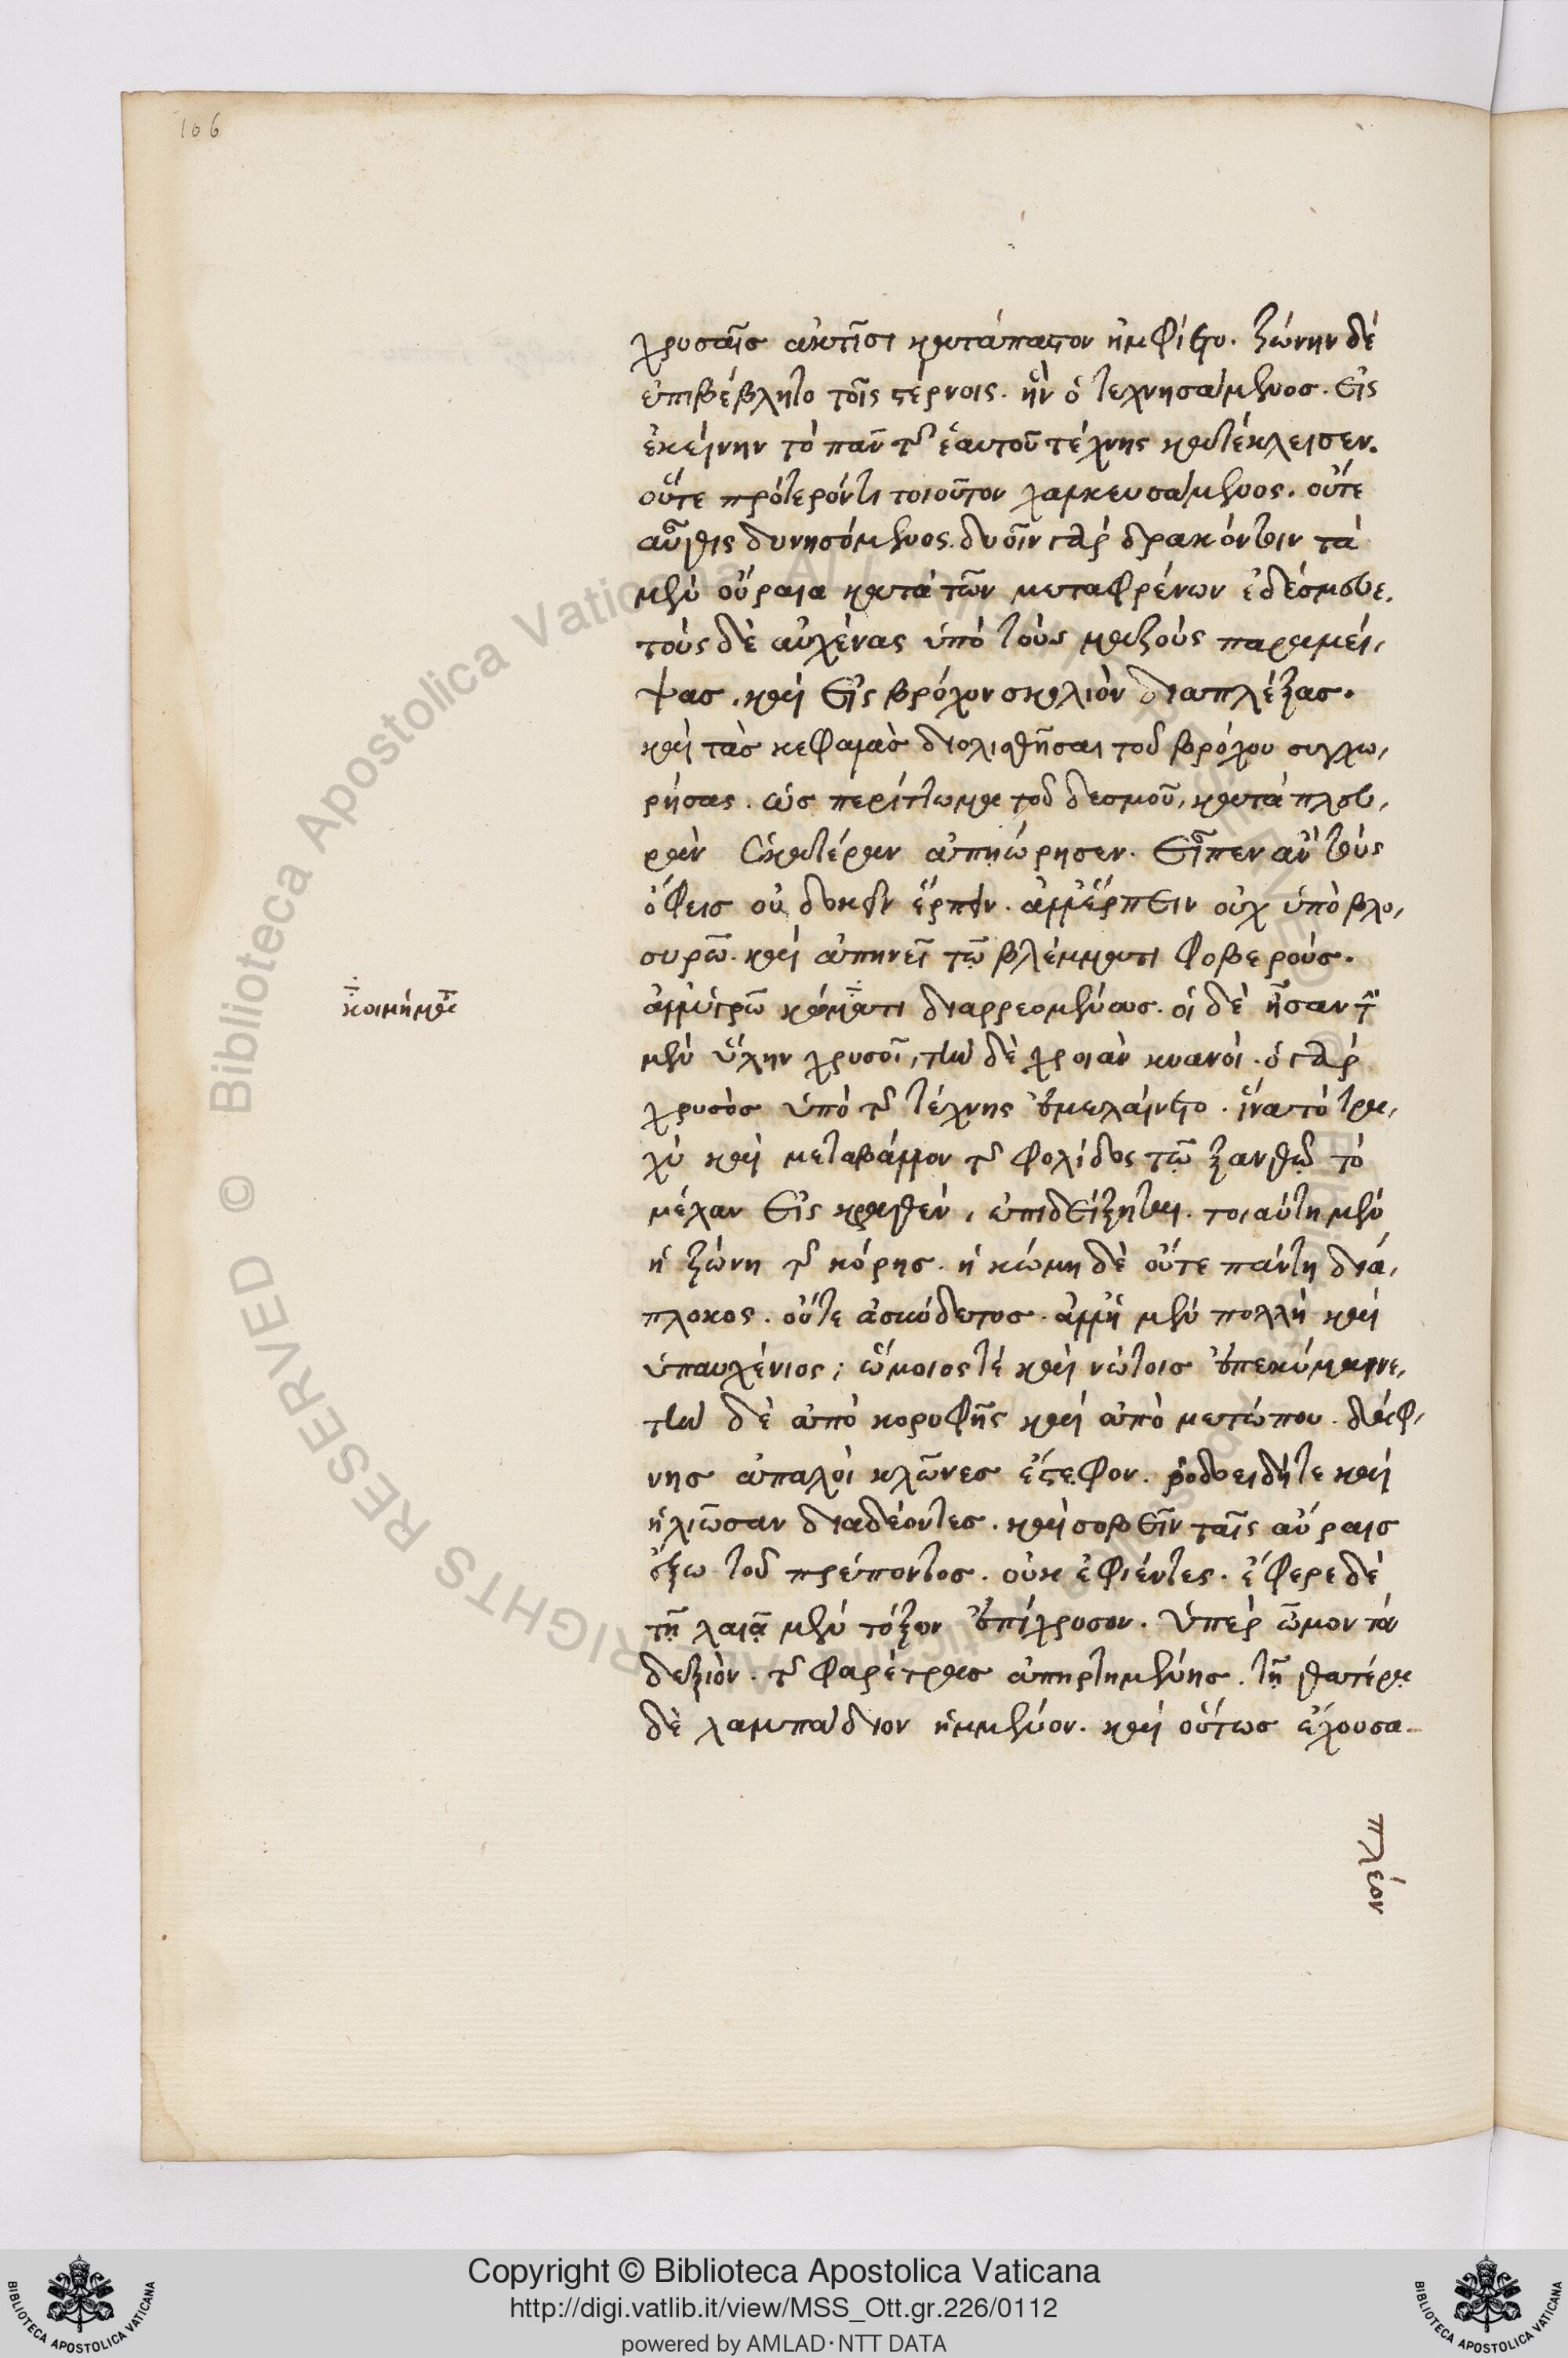 106
χρυσαῖς ἀκτῖσι κατάπαστον ἠμφίεστο. ζώνην δὲ
ἐπιβέβλητο τοῖς στέρνοις. ἣν ὁ τεχνησάμενος. εἰς
ἐκείνην τὸ πᾶν τῆς ἑαυτοῦ τέχνης κατέκλεισεν.
οὔτε πρότερόν τι τοιοῦτον χαλκευσάμενος. οὔτε
αὖθις δυνησόμενος. δυοῖν γὰρ δρακόντοιν τὰ
μὲν οὐραῖα κατὰ τῶν μεταφρένων ἐδέσμευε.
τοὺς δὲ αὐχένας ὑπὸ τοὺς μαζοὺς παραμεί,
ψας. καὶ εἰς βρόχον σκολιὸν διαπλέξας.
καὶ τὰς κεφαλὰς διολισθῆσαι τοῦ βρόχου συγχω,
ρήσας. ὡς περίττωμα τοῦ δεσμοῦ, κατὰ πλευ,
ρὰν ἑκατέραν ἀπῃώρησεν. εἶπεν ἂν τοὺς
ὄφεις οὐ δοκεῖν ἕρπειν. ἀλλ' ἕρπειν οὐχ ὑπὸ βλο,
συρῷ. καὶ ἀπηνεῖ τῷ βλέμματι φοβερούς.
ἀλλ' ὑγρῷ κώματι διαρρεομένους. οἱ δὲ ἦσαν τὴν
κοιμήματι
μὲν ὕλην χρυσοῖ, τὴν δὲ χροιὰν κυανοῖ. ὁ γὰρ
χρυσὸς ὑπὸ τῆς τέχνης ἐμελαίνετο. ἵνα τὸ τρα,
χὺ καὶ μεταβάλλον τῆς φολίδος τῷ ξανθῷ τὸ
μέλαν εἰς κραθὲν, ἐπιδείξηται. τοιαύτη μὲν
ἡ ζώνη τῆς κόρης. ἡ κώμη δὲ οὔτε πάντη διά,
πλοκος. οὔτε ἀσύνδετος. ἀλλ' ἡ μὲν πολλὴ καὶ
ὑπαυχένιος, ὤμοις τε καὶ νώτοις ἐπεκύμαινε,
τὴν δὲ ἀπὸ κορυφῆς καὶ ἀπὸ μετώπου. δάφ,
νης ἁπαλοὶ κλῶνες ἔστεφον. ῥοδοειδῆ τε καὶ
ἡλιῶσαν διαδέοντες. καὶ σοβεῖν ταῖς αὔραις
ἔξω τοῦ πρέποντος. οὐκ ἐφιέντες. ἔφερε δὲ
τῇ λαιᾷ μὲν τόξον ἐπίχρυσον. ὑπὲρ ὦμον τὸν
δεξιὸν. τῆς φαρέτρας ἀπηρτημένης. τῇ θατέρᾳ
δὲ λαμπάδιον ἡμμένον. καὶ οὕτως ἔχουσα
πλέον
Copyright © Biblioteca Apostolica Vaticana
http://digi.vatlib.it/view/MSS_Ott.gr.226/0112
powered by AMLAD·NTT DATA